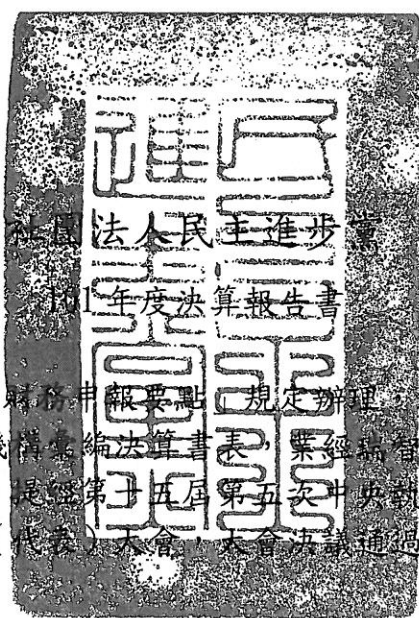 社團法人民主進步黨
101年度決算報告書
財務申報要點」規定辦理，
機構彙編決算書表，業經瑞智
提經第十五屆第五次中央執
代表）大會，大會決議通過